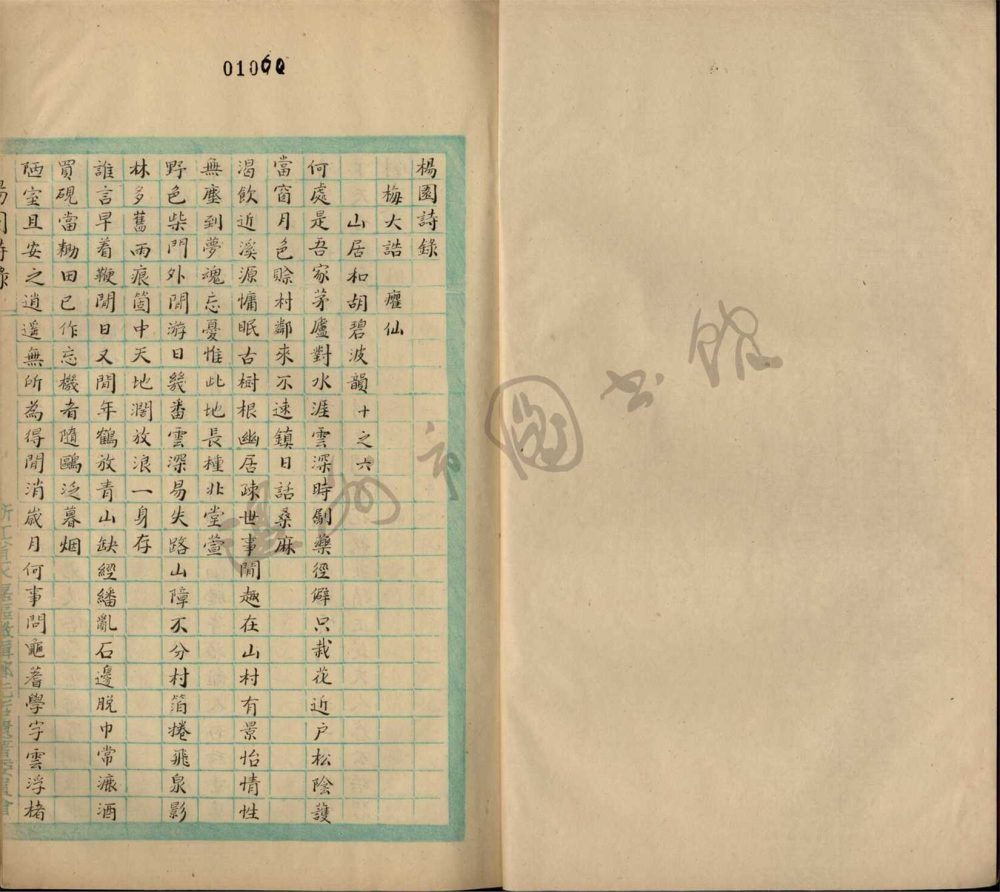 01060
楊園詩錄
梅大誥 癯仙
山居和胡碧波韻十之六
何處是吾家茅廬對水涯雲深時劚藥徑僻只栽花近户松陰護
當窗月色賒村鄰來不速鎮日話桑麻
渴飲近溪源慵眠古樹根幽居疎世事閒趣在山村有景怡情性
無塵到夢魂忘憂惟此地長種北堂萱
野色柴門外閒游日幾番雲深易失路山障不分村箔捲飛泉影
林多舊雨痕箇中天地濶放浪一身存
誰言早着鞭閒日又閒年鶴放青山缺經繙亂石邊脱巾常漉酒
買硯當耡田已作忘機者隨鷗泛暮烟
陋室且安之逍遥無所為得閒消歲月何事問龜蓍學字雲浮楮
楊園詩錄
溫州市圖書館